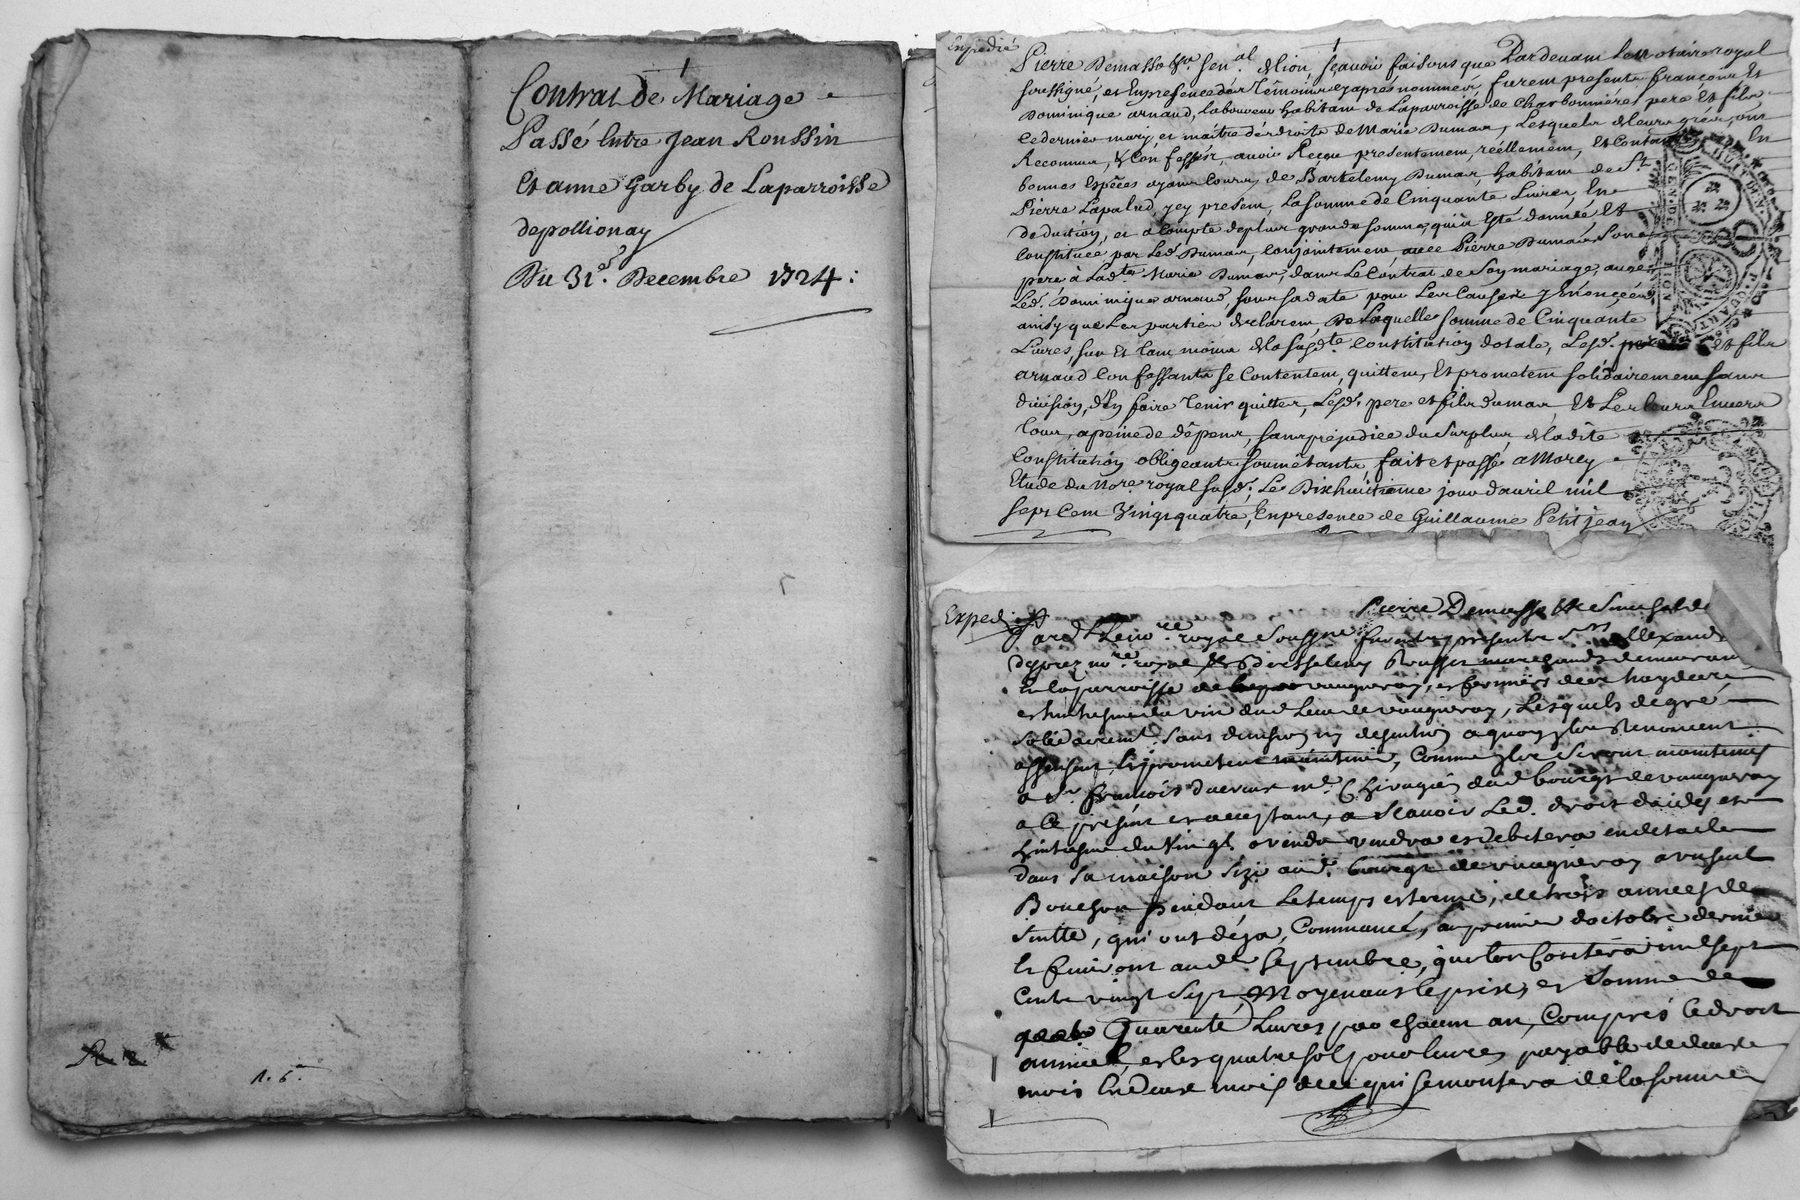 Contrat de Mariage
Passé Entre Jean Roussin
Et anne Garby de Laparroisse
depollionay
Du 31.e Decembre 1724 :
1. 6.
Expedié
Pierre Demasso &a. sen.al de lion, sçavoir faisons que Pardevant Le notaire royal
soussigné, et En presence des Temoins cy apres nommés, furent presents françois Et
Dominique arnaud, laboureurs habitans de Laparroisse de Charbonnieres pere Et fils
Ce dernier mary, et maitre des droits de Marie Dumas, Lesquels de leurs grés, ont
Reconnus, & Confessés, avoir Reçeu presentement, réellement, Et Contant En
bonnes Espéces ayant Cours, de Bartelemy Dumas, habitant de St.
Pierre Lapalud, jcy present, La somme de Cinquante Livres, En
deduction, et a Compte de plus grande somme, qui a Esté donnée Et
Constituée par Led. Dumas, Conjointement avec Pierre Dumas, Son
pere à Lad.te Marie Dumas, dans Le Contrat de Son mariage, avec
Led. Dominique arnaud, sous sa date pour Les Causes y Enoncées
ainsy que Les parties declarent, De Laquelle somme de Cinquante
Livres, sur Et tant moins de la susd.te Constitution dotale, Lesd. pere Et fils
arnaud Confessants se Contentent, quittent, Et prometent solidairement sans
division, d'En faire tenir quittes, Lesd. pere et fils dumas, Et Les leurs Envers
tous, a peine de dépens, sans préjudice du surplus, de ladite
Constitution obligeants soumétants, fait et passé a Morcy
Etude du No.re royal susd., Le Dixhuitieme jour d'avril mil
sept Cent Vingt quatre, En presence de Guillaume Petitjean
Exped.
Pierre Demasso &c Senechal de
Pard.t Le no.re royal Soussigné furent presents S.rs Allexandre
no.re royal, & Berthelemy marchands demeurants
En la parroisse de vaugneray, et fermiers
et huitiesme du vin dud. Lieu de vaugneray, Lesquels de gré
solidairem.t sans division ny discution a quoy Renoncent
assensent, Et prometent maintenir, Comme
a S.r françois m.e Chirurgien dud. bourg de vaugneray
a Ce present et acceptant, a Scavoir Led. droit daides et
huitiesme du vin qu'il a vendu vendra et debitera en detail
dans sa maison size aud. bourg de vaugneray a un seul
Bouchon pendant Le temps et terme, de trois années de
Suitte, qui ont déja Commancé, au premier doctobre dernier
Et finiront aud. Septembre, que lon Contera mil sept
Cents vingt Sept, Moyenant le prix, et Somme de
Quarente Livres par chacun an, Compris le droit
annuel, et les quatre sols pour livres, payable de deux
mois En deux mois de ce qui Se montera de la somme